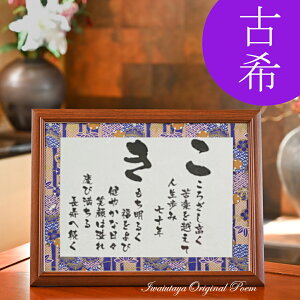 古希
こ
ころざし高く
苦楽を越えて
人生歩み
七十年
き
もち明るく
福をよび
健やかな日々
笑顔は溢れ
慶び満ちる
長寿へ続く
Iwaiutaya Original Poem